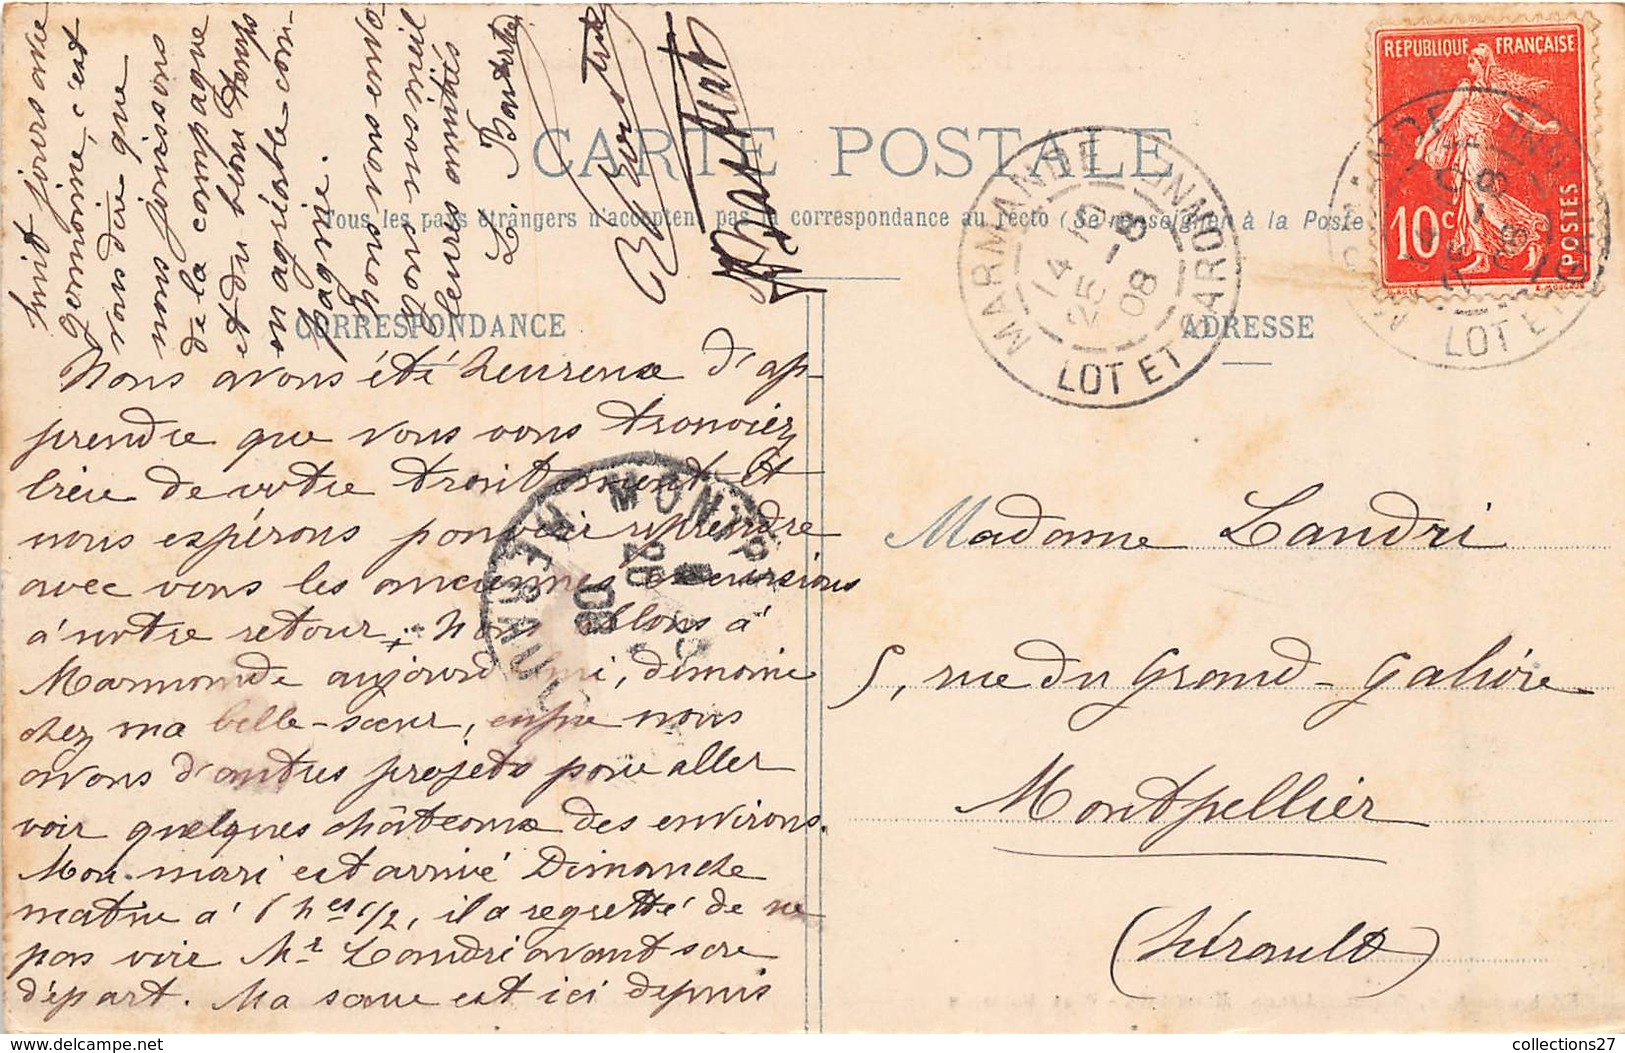 CARTE POSTALE
Tous les pays étrangers n'acceptent pas la correspondance au recto (Se renseigner à la Poste
CORRESPONDANCE
ADRESSE
RÉPUBLIQUE FRANÇAISE
10c
POSTES
MARMANDE
14
25 - 8
08
LOT ET GARONNE
MONTP
HÉRAULT
08
Nous avons été heureux d'ap-
prendre que vous vous trouviez
bien de votre traitement et
nous espérons pouvoir reprendre
avec vous les anciennes excursions
à votre retour; Nous allons à
Marmande aujourd'hui, demain
chez ma belle-sœur, enfin nous
avons d'autres projets pour aller
voir quelques châteaux des environs.
Mon mari est arrivé Dimanche
matin à 6 hes 1/2, il a regretté de ne
pas voir Mr Landri avant son
départ. Ma sœur est ici depuis
huit jours avec
Germaine, c'est
vous dire que
nous jouissons
de la campagne
et du temps
magnifique con-
jugué.
nous
L. Bautrat
Madame Landri
5, rue du Grand-Galion
Montpellier
(Hérault)
collections27